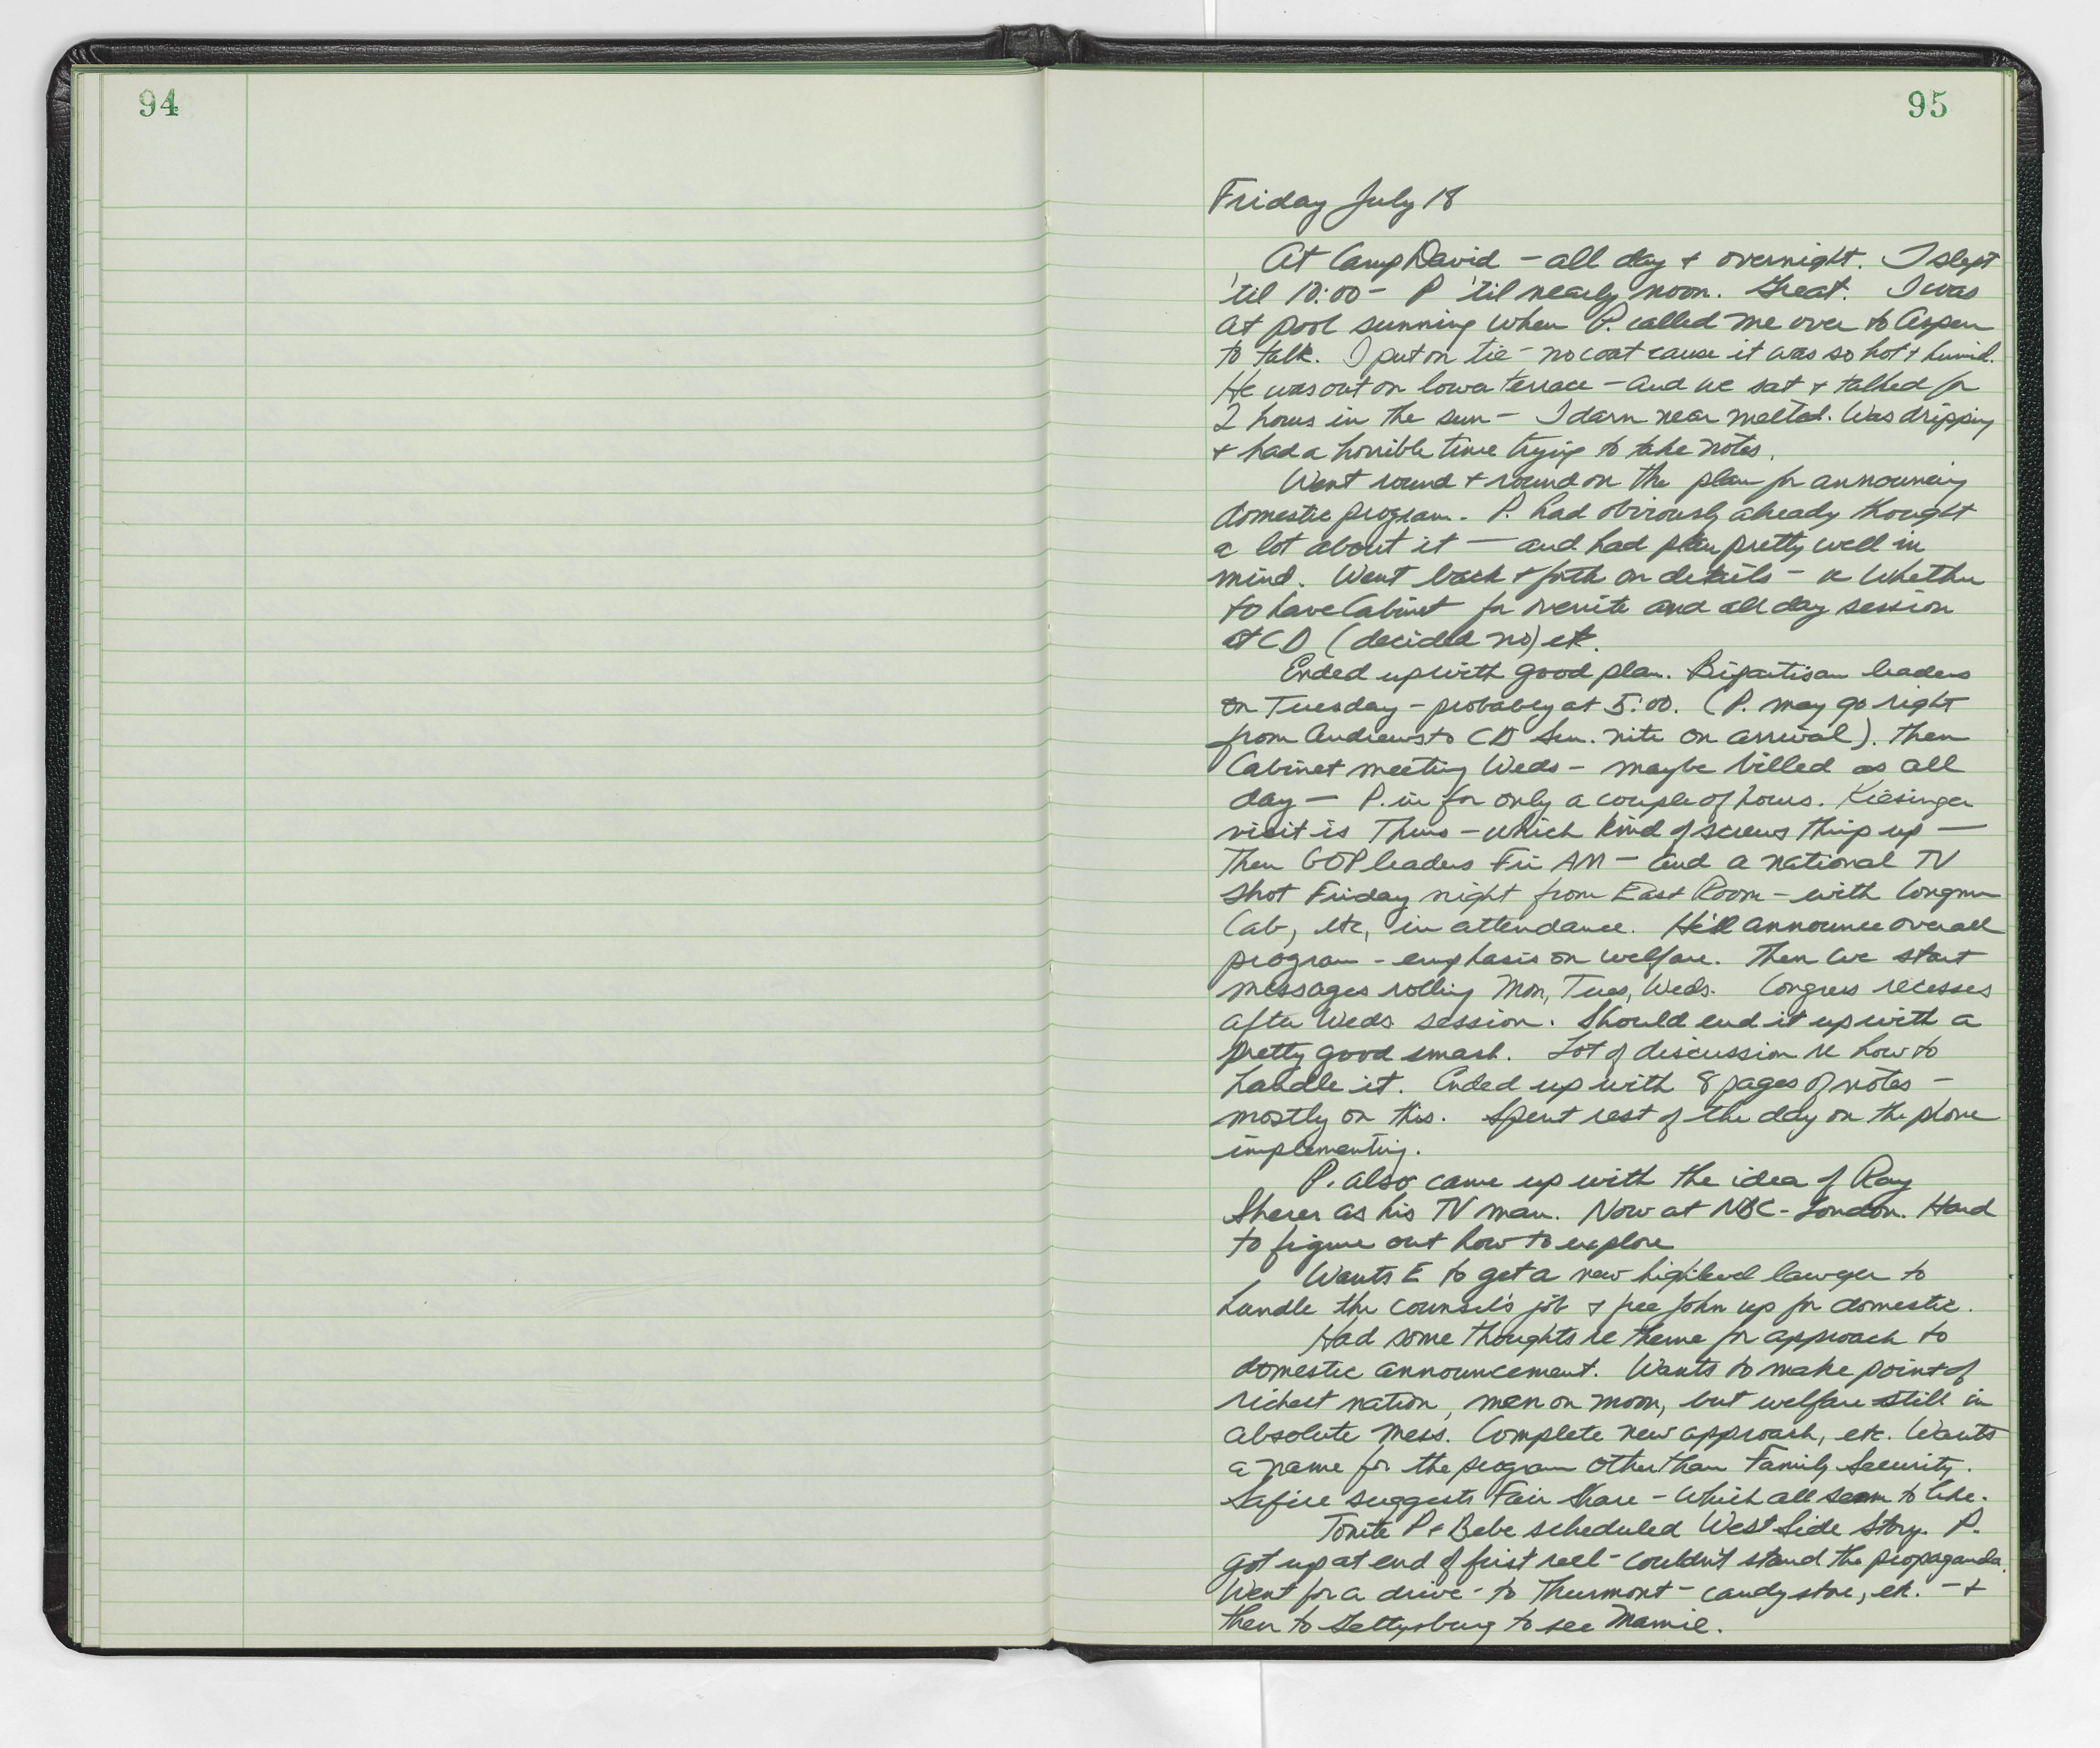 94
95
Friday July 18
At Camp David - all day + overnight. I slept
'til 10:00 - P 'til nearly noon. Great. I was
at pool sunning when P. called me over to Aspen
to talk. I put on tie - no coat cause it was so hot + humid.
He was out on lower terrace - and we sat + talked for
2 hours in the sun - I darn near melted. Was dripping
+ had a horrible time trying to take notes.
Went round + round on the plan for announcing
domestic program. P. had obviously already thought
a lot about it — and had plan pretty well in
mind. Went back + forth on details - re whether
to have Cabinet for overnite and all day session
at CD (decided no) etc.
Ended up with good plan. Bipartisan leaders
on Tuesday - probably at 5:00. (P. may go right
from Andrews to CD Sun. nite on arrival). Then
Cabinet meeting Weds - maybe billed as all
day — P. in for only a couple of hours. Kiesinger
visit is Thurs - which kind of screws things up —
Then GOP leaders Fri AM - and a national TV
shot Friday night from East Room - with Congmn
Cab, etc, in attendance. He'll announce overall
program - emphasis on welfare. Then we start
messages rolling Mon, Tues, Weds. Congress recesses
after Weds. session. Should end it up with a
pretty good smash. Lot of discussion re how to
handle it. Ended up with 8 pages of notes -
mostly on this. Spent rest of the day on the phone
implementing.
P. also came up with the idea of Ray
Sherer as his TV man. Now at NBC - London. Hard
to figure out how to explore
Wants E to get a new high level lawyer to
handle the counsel's job + free John up for domestic.
Had some thoughts re theme for approach to
domestic announcement. Wants to make point of
richest nation, men on moon, but welfare still in
absolute mess. Complete new approach, etc. Wants
a name for the program other than Family Security.
Safire suggests Fair Share - which all seem to like.
Tonite P + Bebe scheduled West Side Story. P.
got up at end of first reel - couldn't stand the propaganda.
Went for a drive - to Thurmont - candy store, etc. - +
then to Gettysburg to see Mamie.